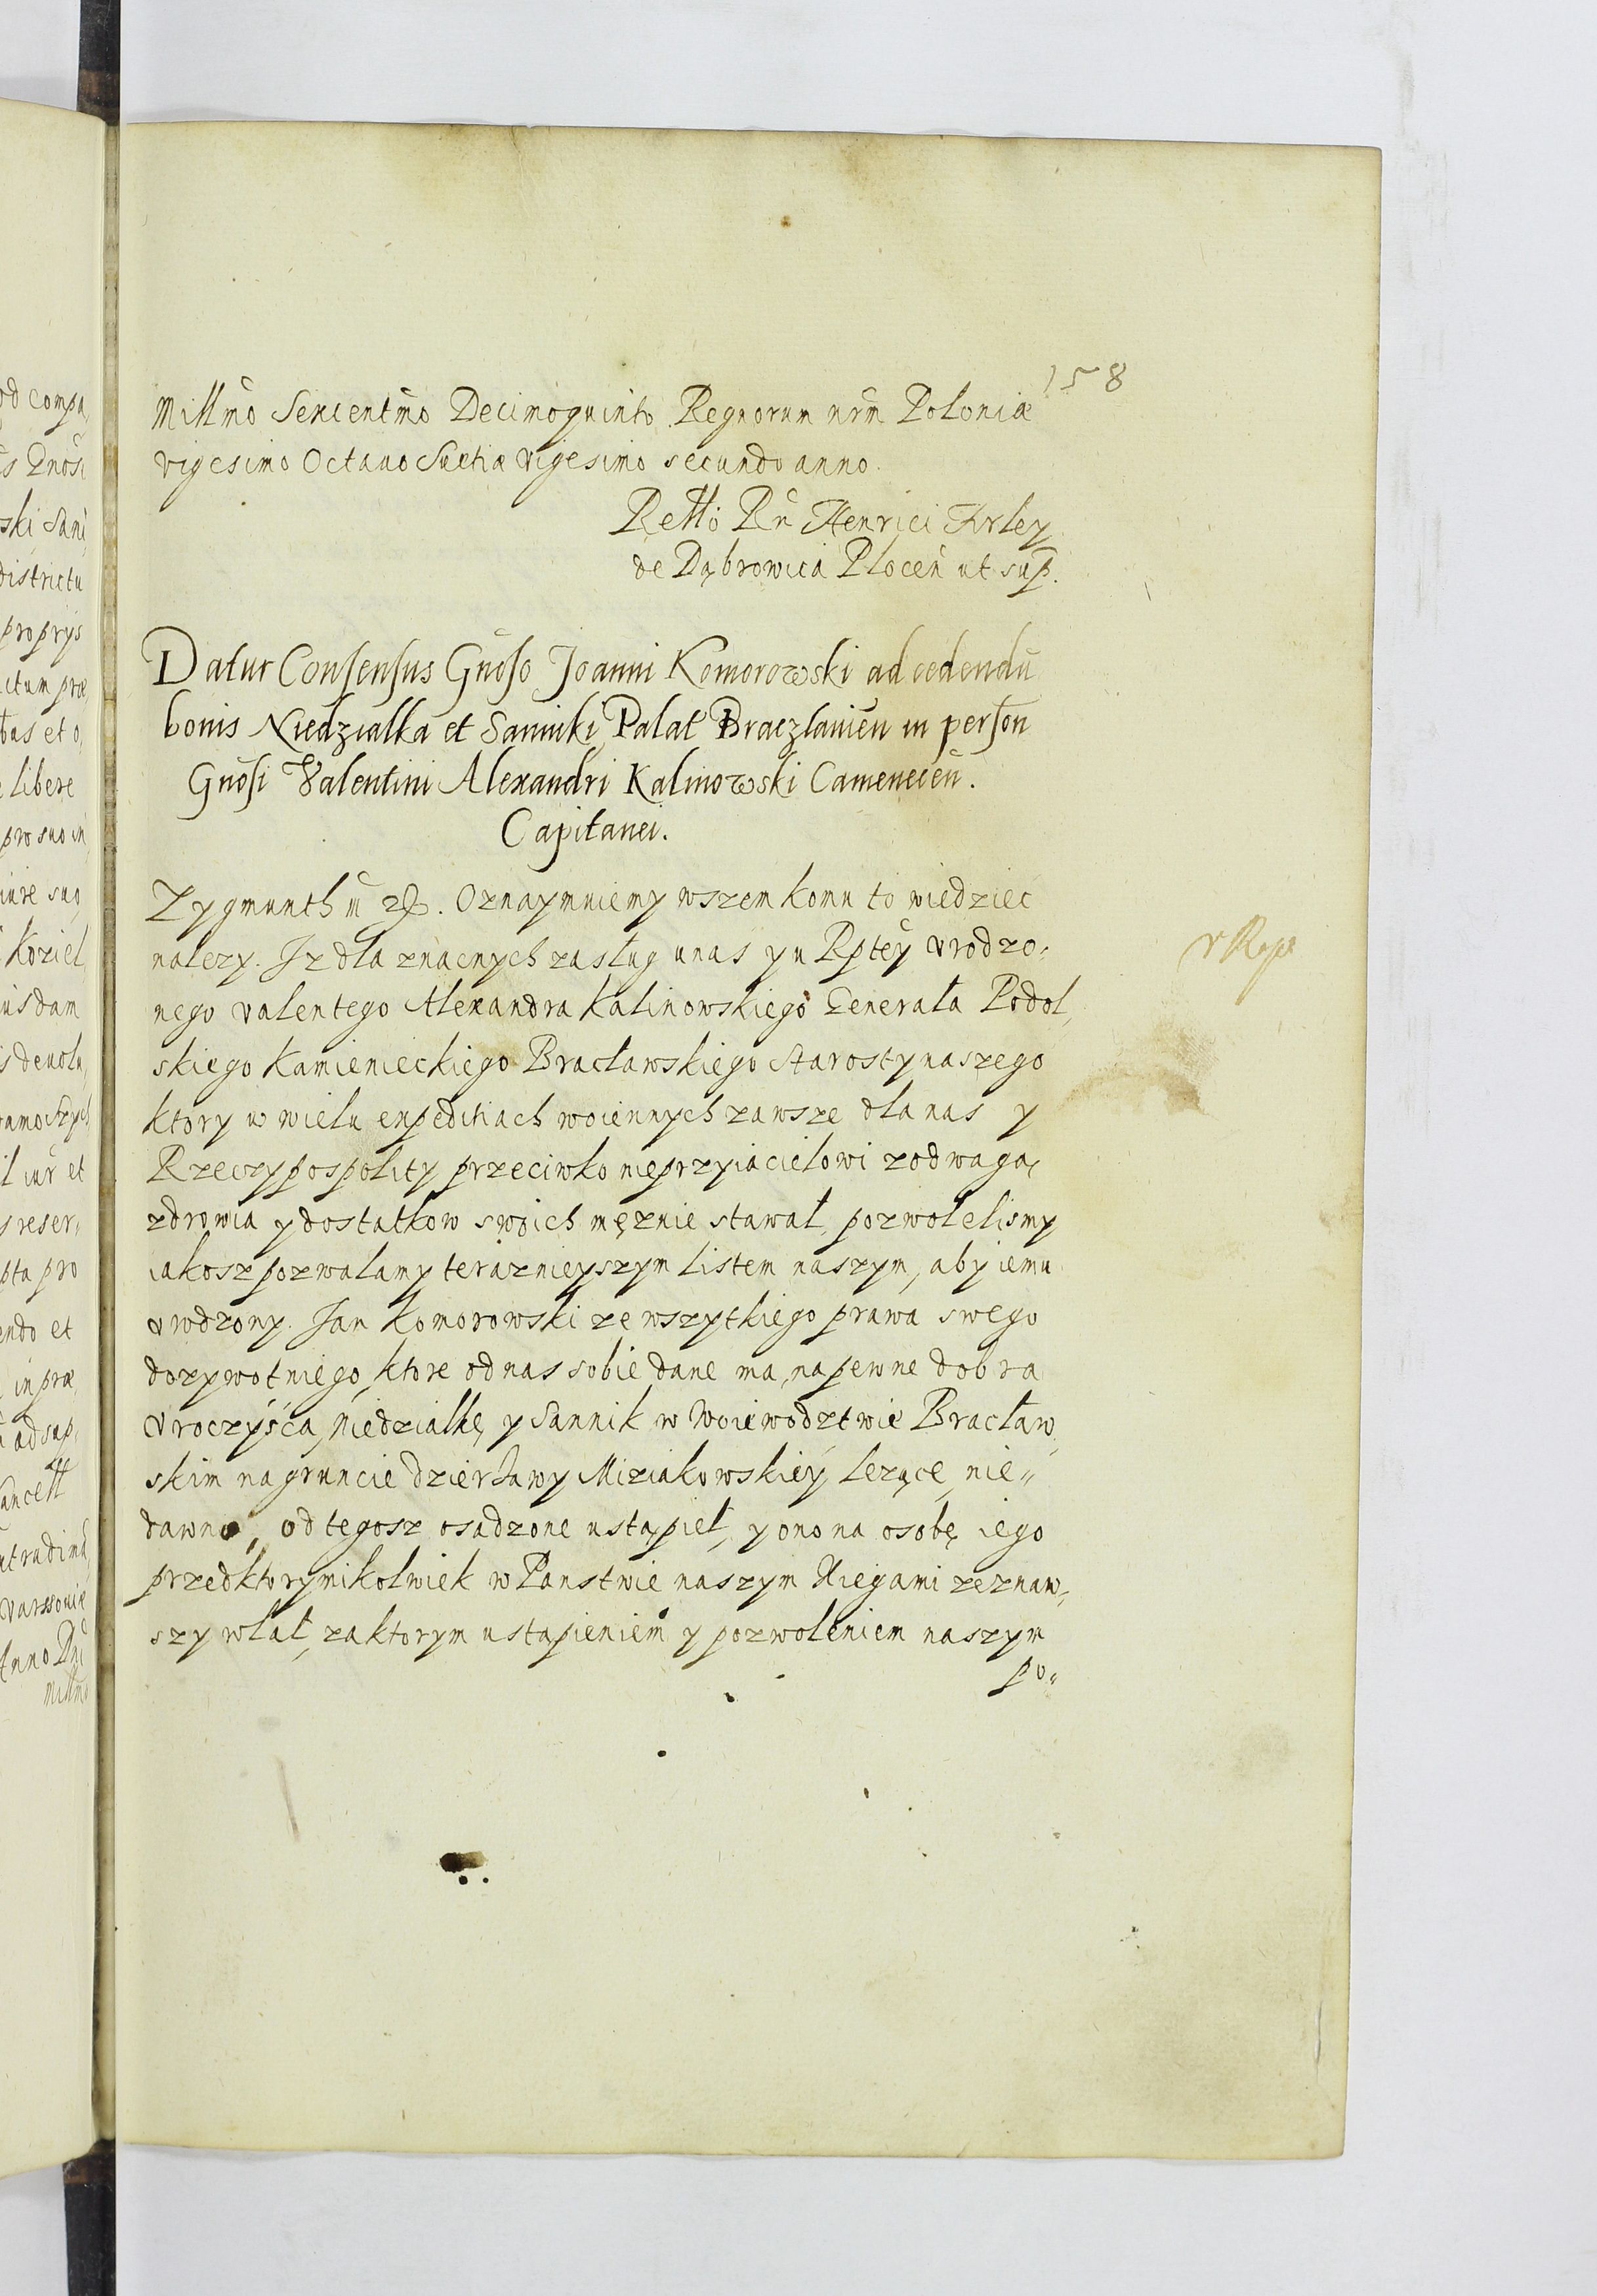 158
Millmo Sexcentmo Decimoquinto Regnorum nrm Poloniæ
vigesimo Octauo Suetiæ vigesimo secundo anno.
Rettō Rn Henrici Firley
de Dąbrowica Plocen ut sup.
Datur Consensus Gnoso Joanni Komorowski ad cedendū
bonis Niedzialka et Sanniki Palat Braczlauien in person
Gnosi Valentini Alexandri Kalinowski Camenecen.
Capitanei.
Zygmunth III Oznaymuiemy wszem komu to wiedziec
nalezy. Iz dla znacznych zasług u nas y u Rptey vrodzo-
nego valentego Alexandra Kalinowskiego Generała Podol,
skiego Kamienieckiego Bracławskiego starosty naszego
ktory w wielu expeditiach woiennych zawsze dla nas y
Rzeczypospolity przeciwko nieprzyiacielowi z odwagą
zdrowia y dostatkow swoich mężnie stawał, pozwolelismy
iakosz pozwalamy teraznieyszym listem naszym, aby iemu
vrodzony Jan Komorowski ze wszytkiego prawa swego
dozywotniego, ktore od nas sobie dane ma, na pewne dobra
vroczysca, Niedziałkę y Sannik w Woiewodztwie Bracław,
skim na gruncie dzierżawy Miziakowskiey lezące, nie„
dawno, od tegosz osadzone ustąpieł, y ono na osobę iego
przed ktorymikolwiek w Panstwie naszym Xięgami zeznaw,
szy wlał, za ktorym ustąpieniem y pozwoleniem naszym
po„